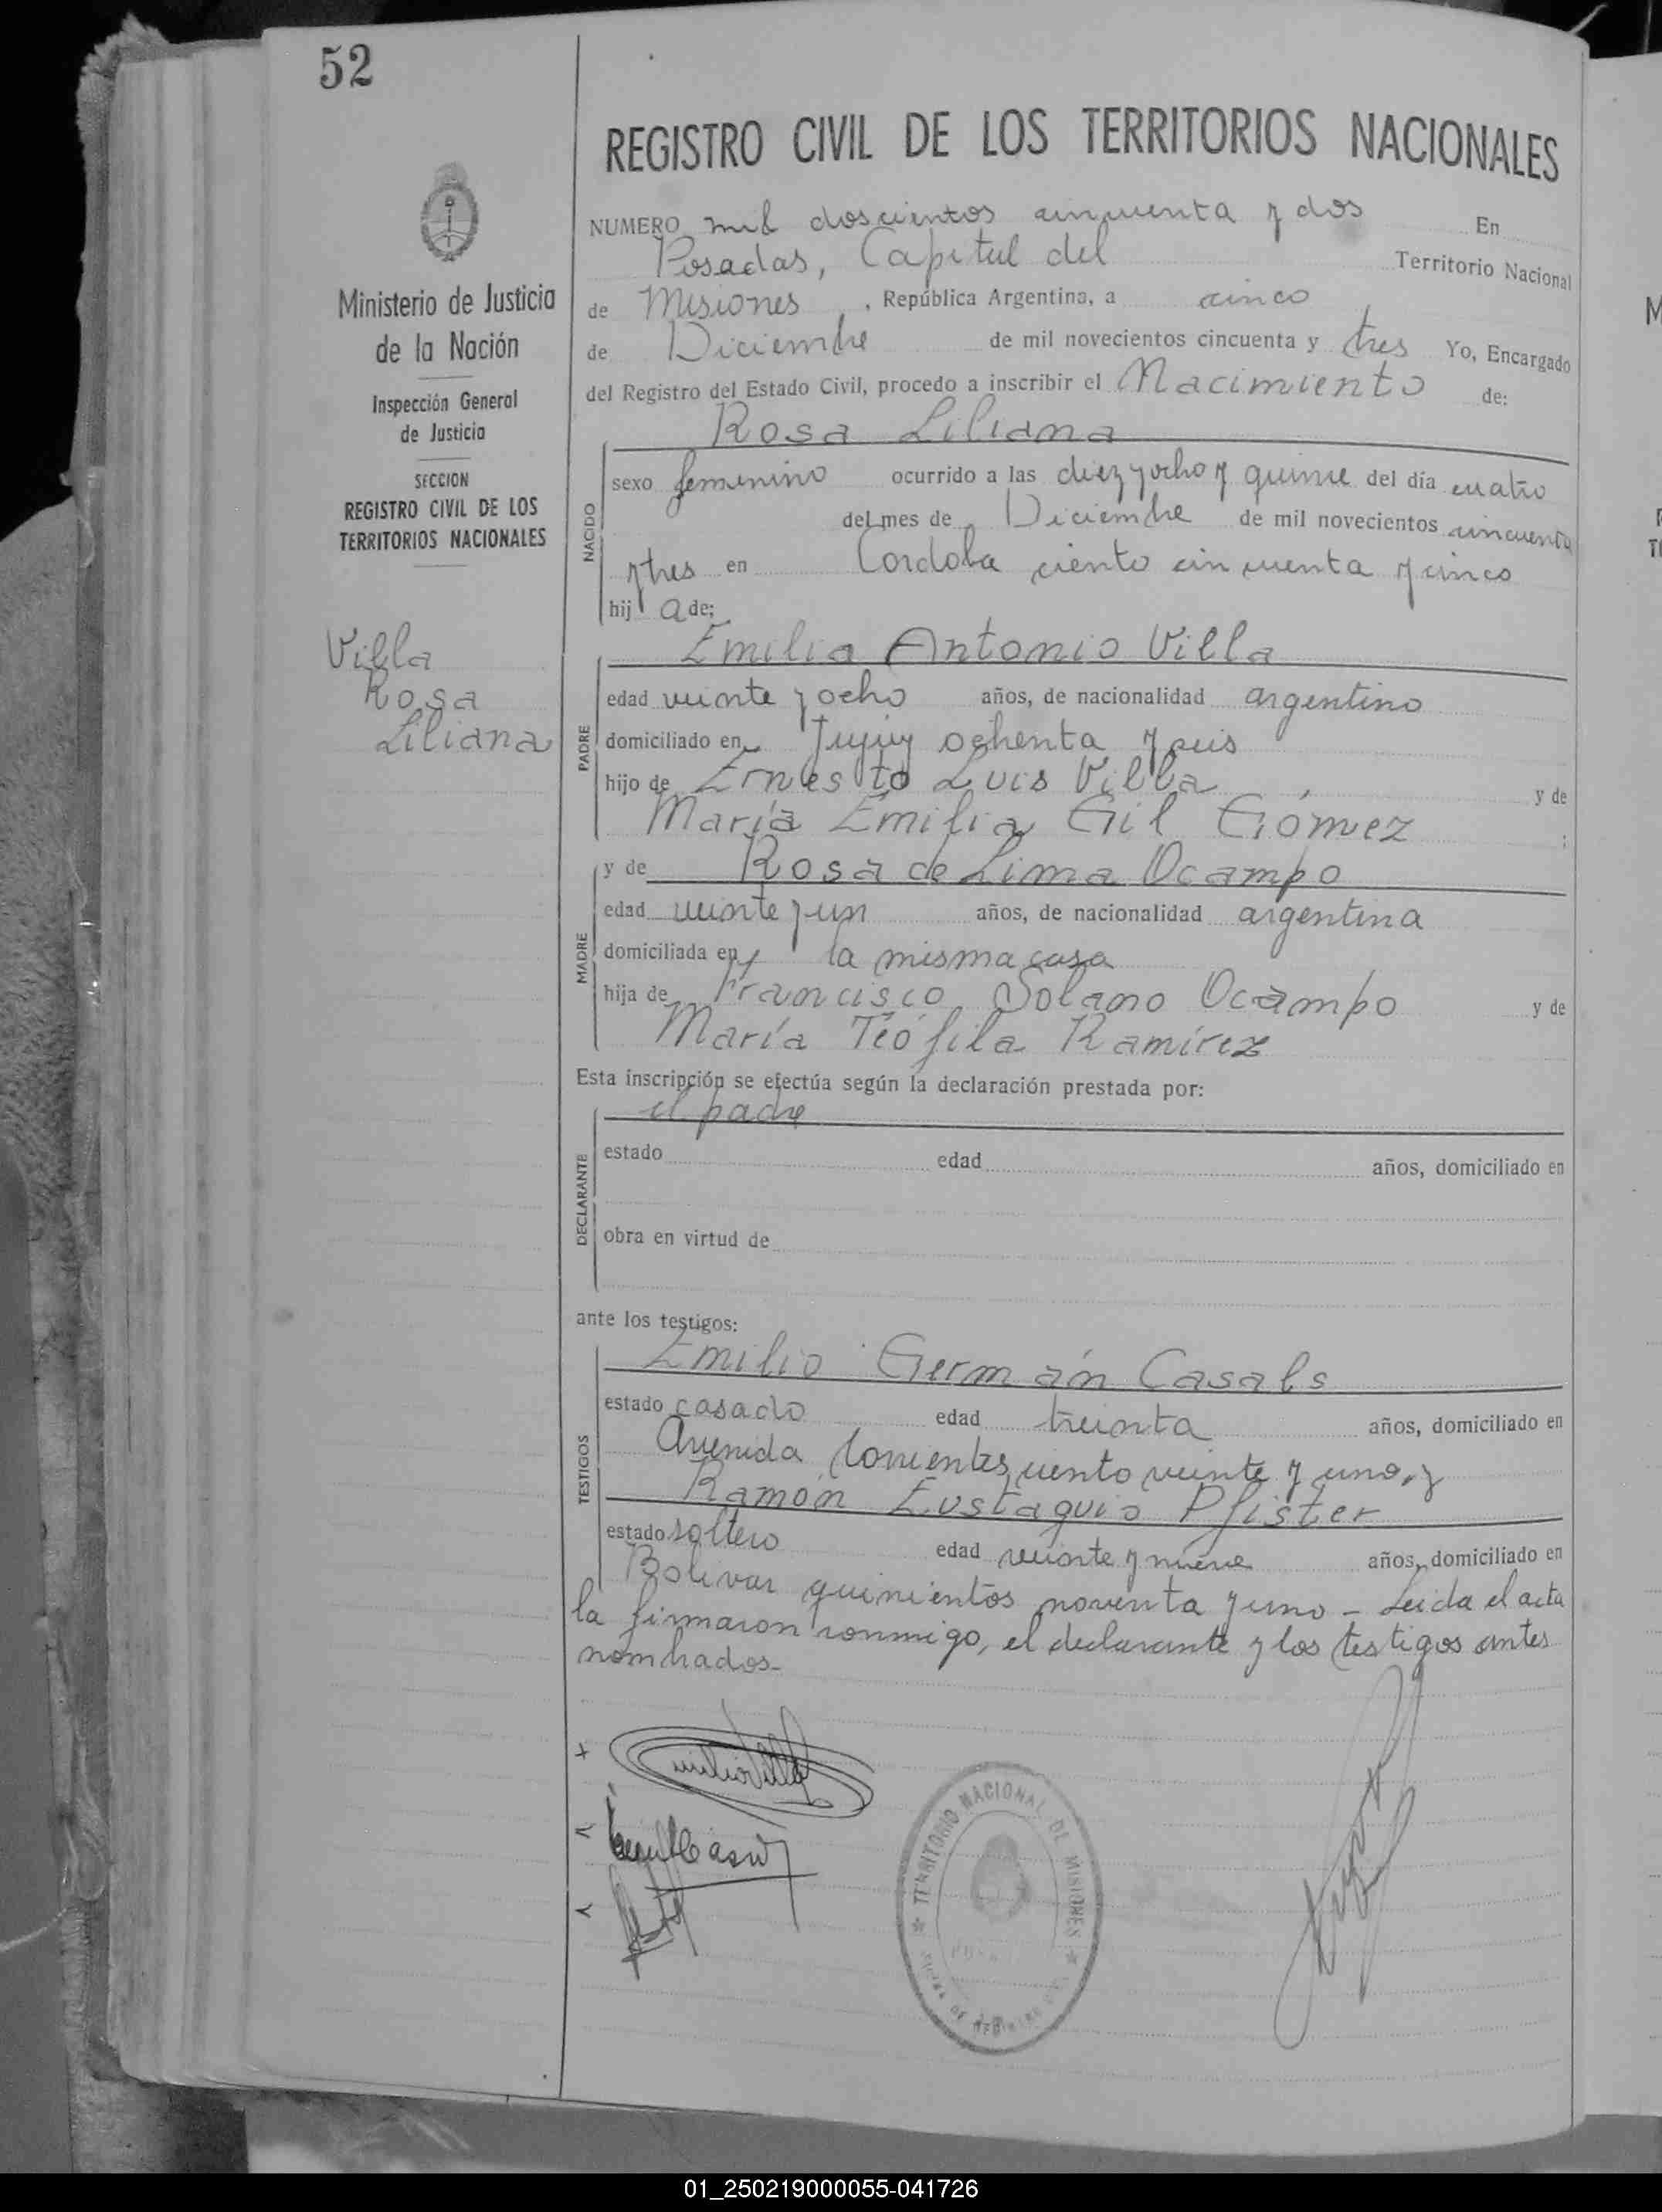 52
REGISTRO CIVIL DE LOS TERRITORIOS NACIONALES
Ministerio de Justicia
de la Nación
Inspección General
de Justicia
SECCION
REGISTRO CIVIL DE LOS
TERRITORIOS NACIONALES
Villa
Rosa
Liliana
NUMERO mil doscientos cincuenta y dos En
Posadas, Capital del Territorio Nacional
de Misiones, República Argentina, a cinco
de Diciembre de mil novecientos cincuenta y tres Yo, Encargado
del Registro del Estado Civil, procedo a inscribir el Nacimiento de:
Rosa Liliana
NACIDO
sexo femenino ocurrido a las diez y ocho y quince del día cuatro
del mes de Diciembre de mil novecientos cincuenta
y tres en Cordoba ciento cincuenta y cinco
hij a de:
Emilio Antonio Villa
PADRE
edad veinte y ocho años, de nacionalidad argentino
domiciliado en Jujuy ochenta y seis
hijo de Ernesto Luis Villa y de
María Emilia Gil Gómez ;
y de Rosa de Lima Ocampo
MADRE
edad veinte y un años, de nacionalidad argentina
domiciliada en la misma casa
hija de Francisco Solano Ocampo y de
María Teófila Ramírez
Esta inscripción se efectúa según la declaración prestada por:
el padre
DECLARANTE
estado edad años, domiciliado en
obra en virtud de
ante los testigos:
Emilio Germán Casals
TESTIGOS
estado casado edad treinta años, domiciliado en
Avenida Corrientes ciento veinte y uno, y
Ramón Eustaquio Pfister
estado soltero edad veinte y nueve años, domiciliado en
Bolivar quinientos noventa y uno - Leida el acta
la firmaron conmigo, el declarante y los testigos antes
nombrados-
TERRITORIO NACIONAL DE MISIONES
01_250219000055-041726